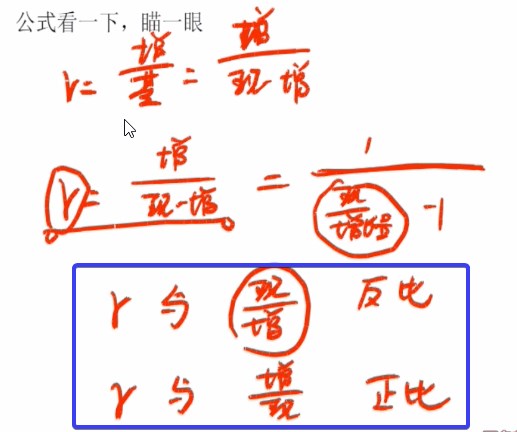 公式看一下，瞄一眼
r = 增/基 = 增/现 增
r = 增/现-增 = 1/(现/增量 - 1)
r 与 现/增 反比
r 与 增/现 正比